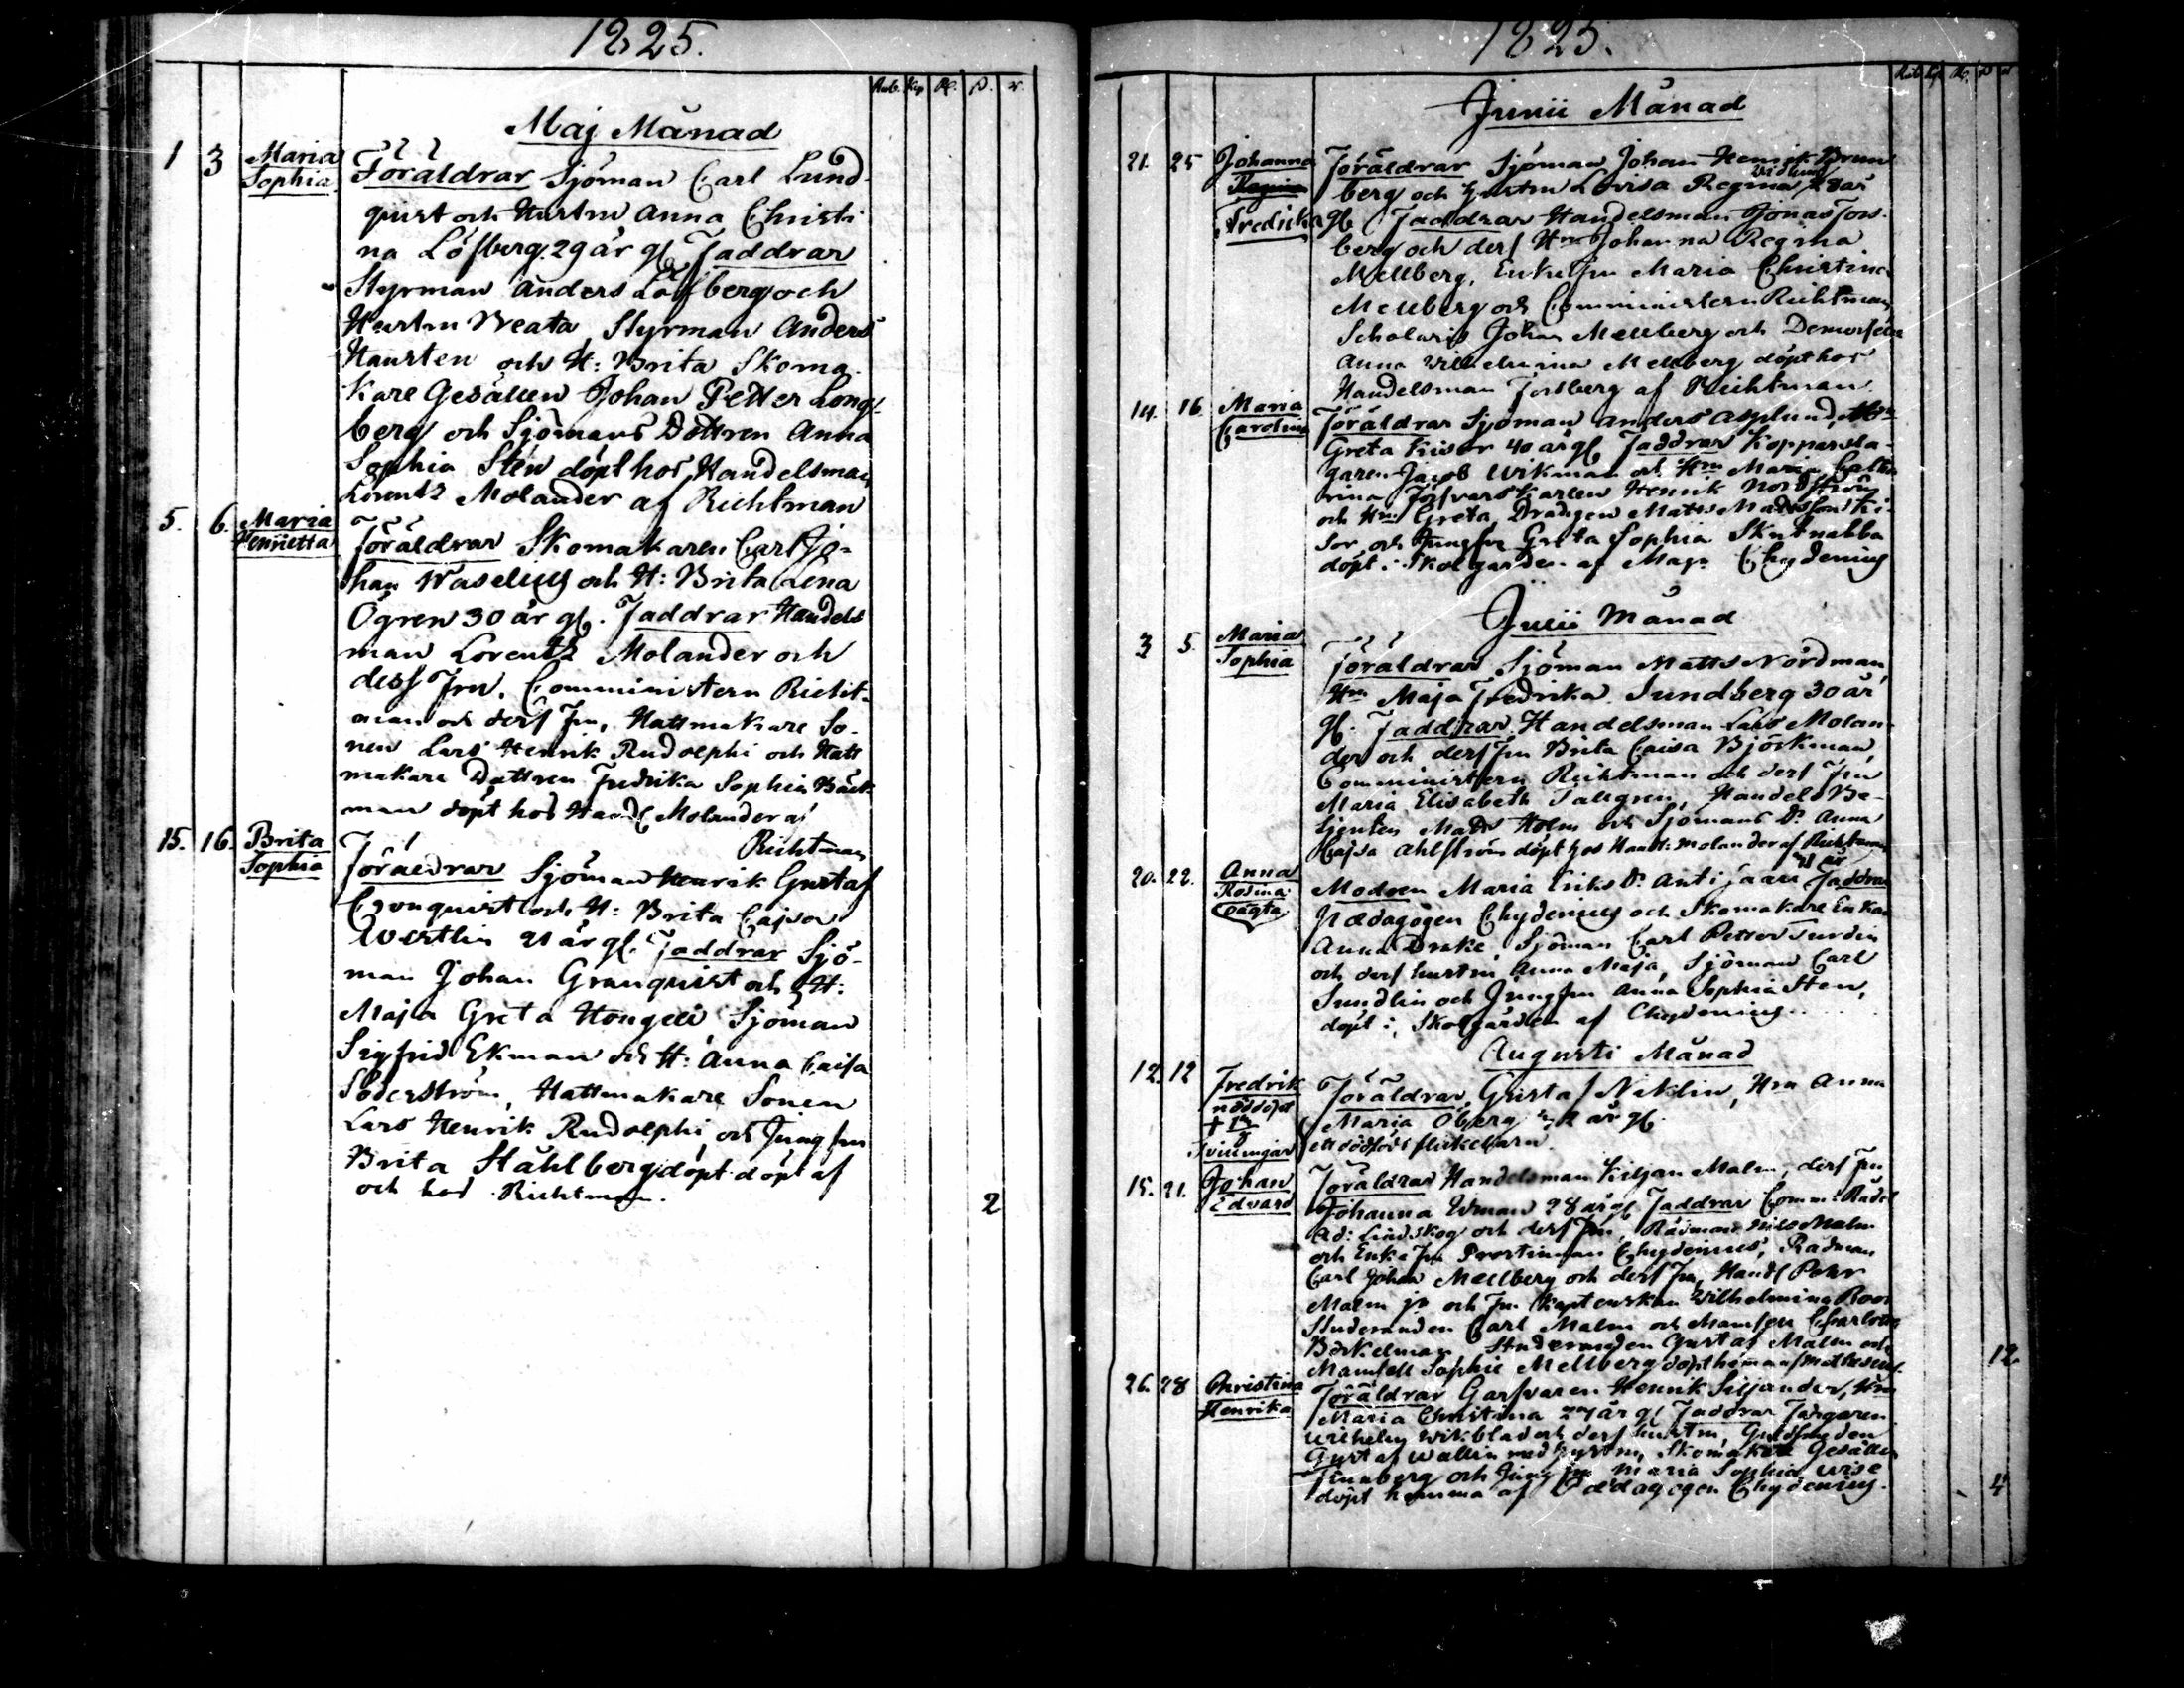 1825.
Rub. Kop R. S. r.
Maj Månad
1 3 Maria Föräldrar Sjöman Carl Lund-
Sophia quist och Hustru Anna Christi
na Löfberg 29 år gl. Faddrar
Styrman Anders Löfberg och
Hustru Beata, Styrman Anders
och H: Brita Skoma-
kare Gesällen Johan Petter Long-
berg och Sjömans Dottren Anna
Sophia Sten döpt hos Handelsman
Lorentz Molander af Richtman
5. 6. Maria Föräldrar Skomakaren Carl Jo-
Henrietta han Waselius och H: Brita Lena
Ögren 30 år gl. Faddrar Handels
man Lorentz Molander och
dess Fru, Comministern Richt-
man och dess Fru, Hattmakare So-
nen Lars Henrik Rudolphi och Hatt
makare Dottren Fredrika Sophia Bäck
man döpt hos Handl Molander af
Richtman
15. 16. Brita Föräldrar Sjöman Henrik Gustaf
Sophia Cronquist och H: Brita Cajsa
Westlin 21 år gl. Faddrar Sjö-
man Johan Granquist och H:
Maja Greta Hongell, Sjöman
Sigfrid Ekman och H: Anna Caisa
Söderström, Hattmakare Sonen
Lars Henrik Rudolphi och Jungfru
Brita Ståhlberg döpt döpt af
och hos Richtman.
2
1825.
Rub Kp R. S r
Junii Månad
21. 25 Johanna Föräldrar Sjöman Johan Henrik Brun
Regina berg och Hustru Lovisa Regina 28 år
Fredrika gl. Faddrar Handelsman Jonas Fors-
berg och dess Hru Johanna Regina
Mellberg, Enkefru Maria Christina
Mellberg och Comministern Richtman,
Scholaris Johan Mellberg och Demoiselle
Anna Wilhelmina Mellberg döpt hos
Handelsman Forsberg af Richtman
14. 16 Maria Föräldrar Sjöman Anders Asplund, Hru
Carolina Greta Kisor 40 år gl. Faddrar Kopparsla-
garen Jacob Wikman och Hru Maria Catha
rina, Henrik Nordström
och Hru Greta, Drängen Matts Mattsson Ki-
sor och Jungfru Greta Sophia Skutnabba
döpt i Skolgården af Mag. Chydenius
Julii Månad
3 5. Maria Föräldrar Sjöman Matts Nordman,
Sophia Hru Maja Fredrika Sundberg 30 år
gl. Faddrar Handelsman Lars Molan-
der och dess Fru Brita Caisa Björkman
Comministern Richtman och dess Fru
Maria Elisabeth Tallgren, Handels Be-
tjenten Matts Holm och Sjömans D. Anna
Cajsa Ahlström döpt hos Hand: Molander af Richtman
20. 22. Anna Modren Maria Eriks D. Antijaare 21 år Faddrar
Rosina Pædagogen Chydenius och Skomakare Enkan
oägta Anna Drake, Sjöman Carl Petter Turdin
och dess hustru Anna Maja, Sjöman Carl
Sundlin och Jungfru Anna Sophia Sten,
döpt i Skolgården af Chydenius
Augusti Månad
12. 12 Fredrik Föräldrar, Gustaf Neklin, Hru Anna
nöddöpt Maria Öberg år gl.
Tvillingar ett dödfödt flickebarn
15. 21. Johan Föräldrar Handelsman Kiljan Malm, dess Fru
Edvard Johanna Uman 28 år gl. Faddrar Comm: Rådet
Ad: Lindskog och dess Fru, Rådman Nils Malm
och Enke Fru Prostinnan Chydenius, Rådman
Carl Johan Mellberg och dess Fru, Handl Pehr
Malm jr och Fru Kaptenskan Wilhelmina Roos
Studeranden Carl Malm och Mamsell Charlotta
Studeranden Gustaf Malm och
Mamsell Sophie Mellberg döpt hemma af
12.
26. 28 Christina Föräldrar Garfvaren Henrik Siljander, Hru
Henrika Maria Christina år gl Faddrar Färgaren
Wilhelm Wikblad och dess hustru, Guldsmeden
Gustaf Wallin med hustru, Skomakare Gesällen
och Jungfru Maria Sophia Wise
döpt hemma af Pædagogen Chydenius.
4